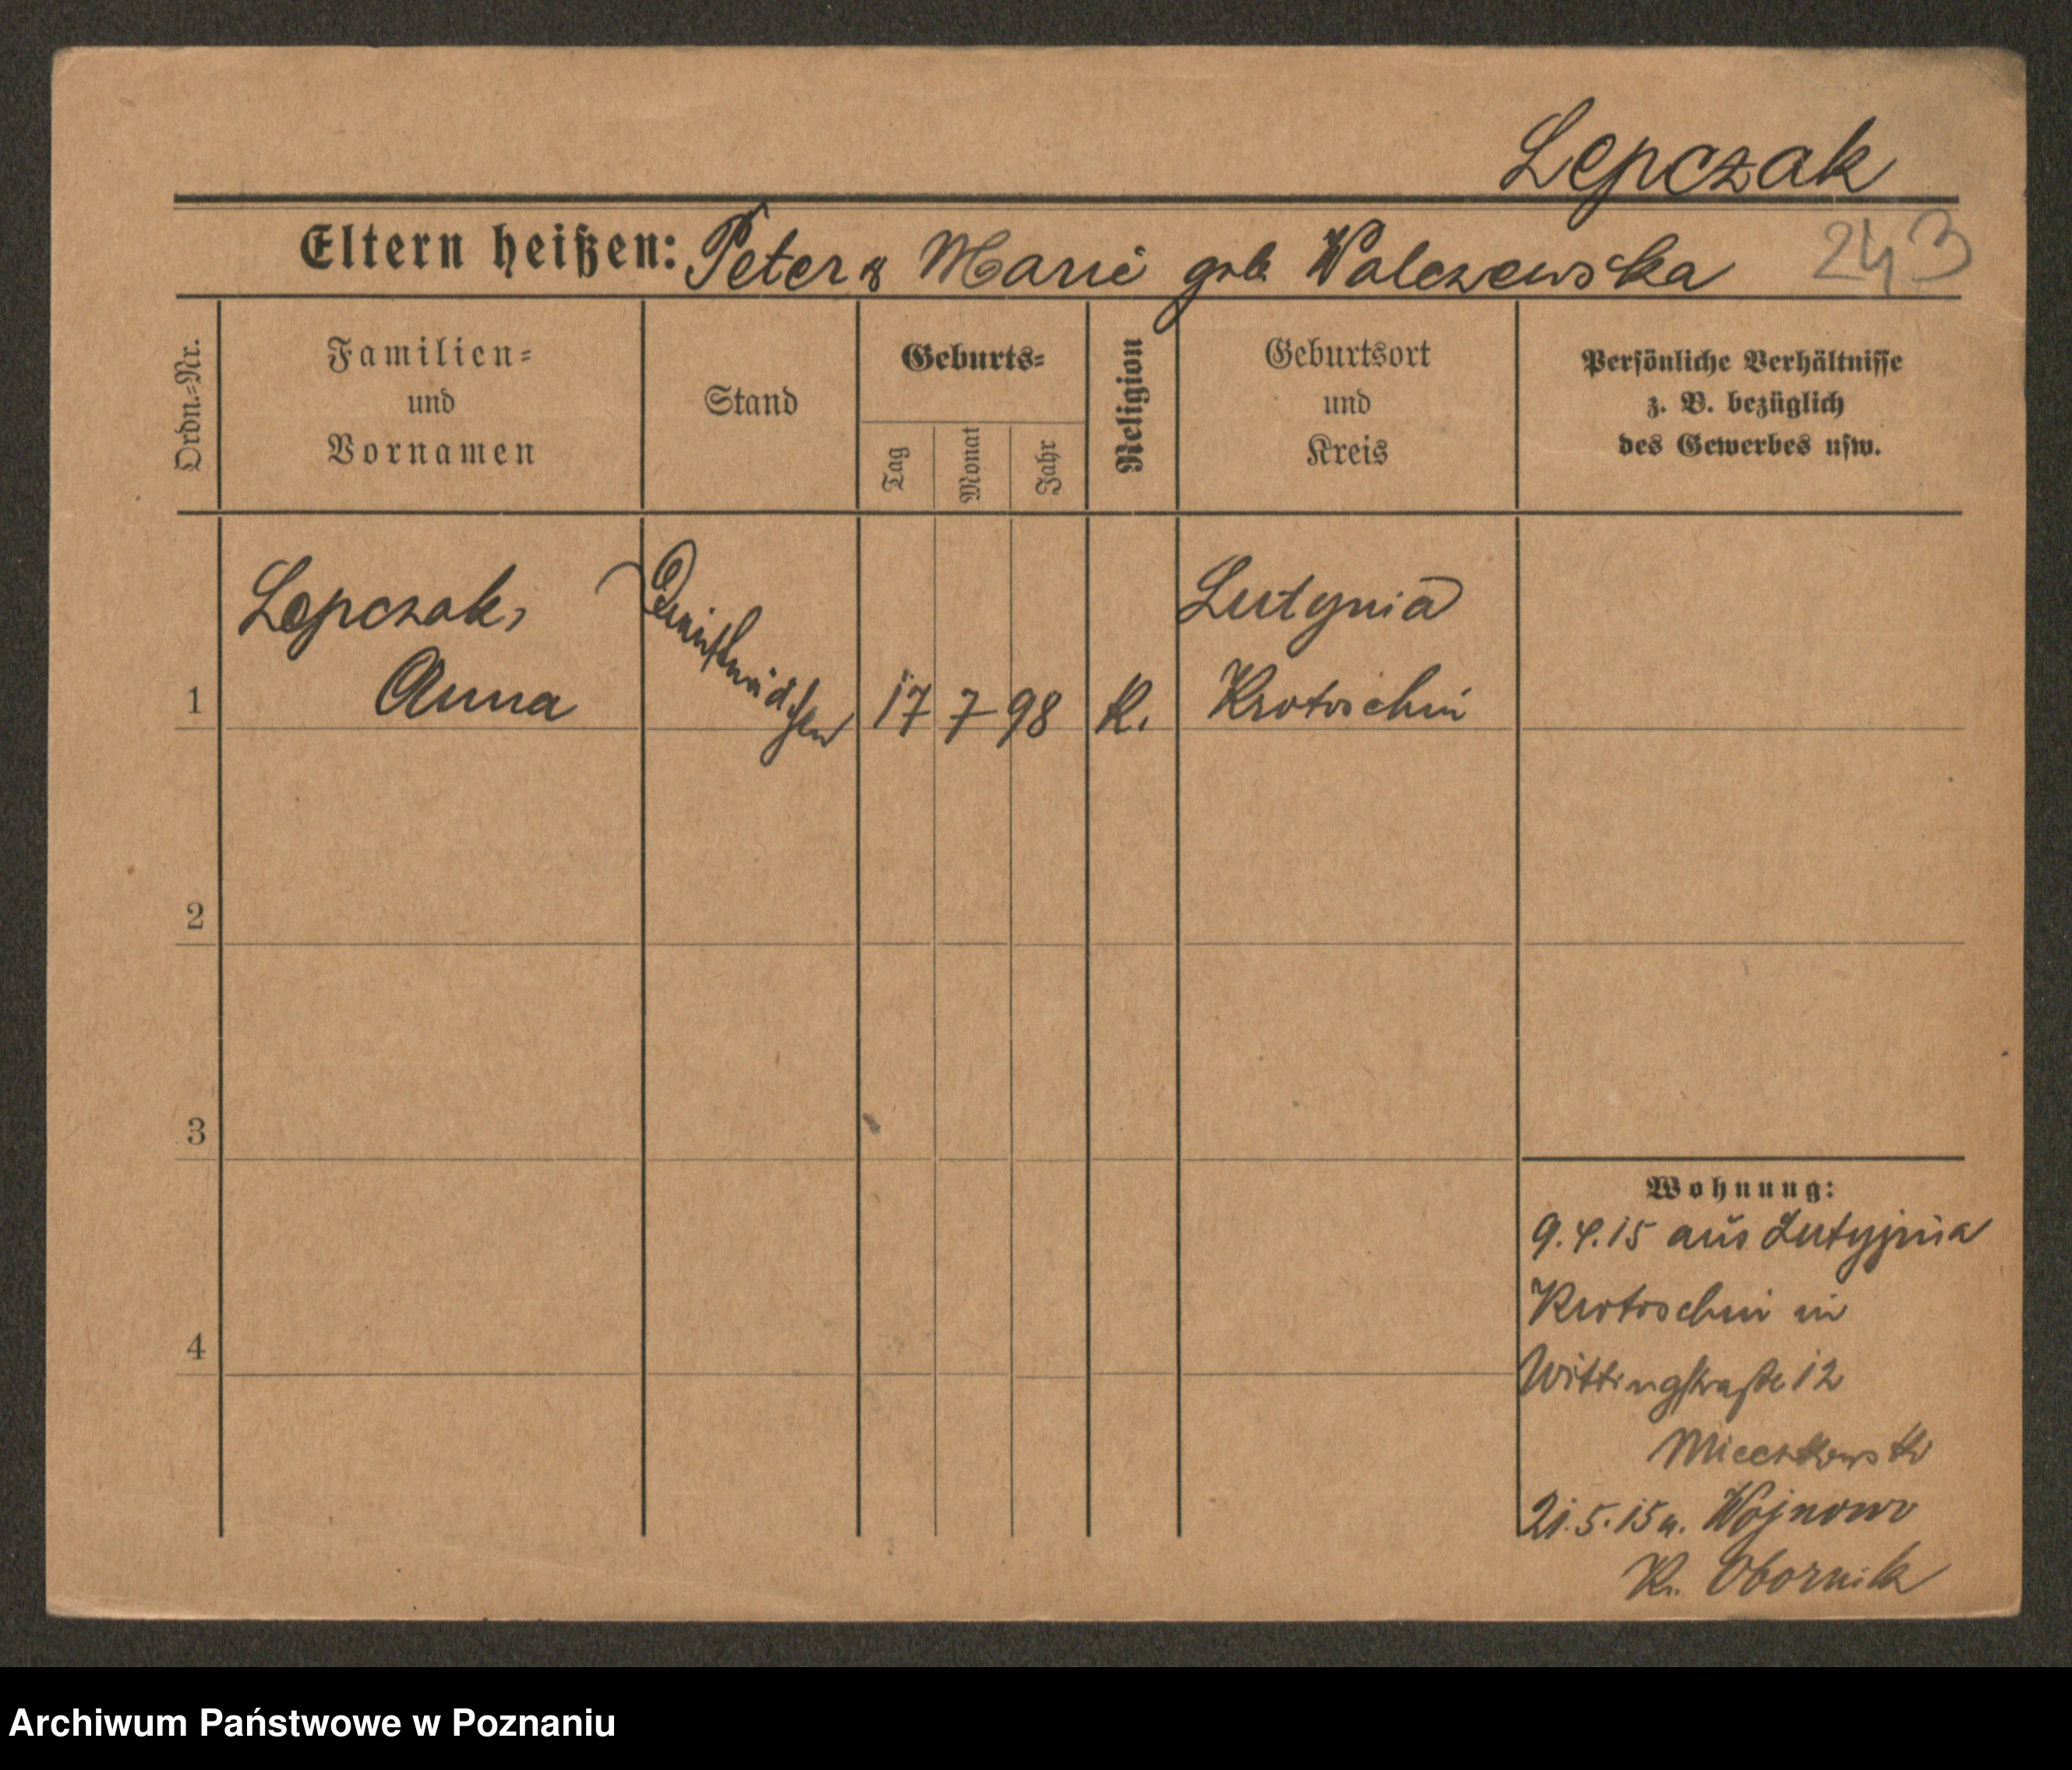 Lepczak
Eltern heißen: Peter & Marie geb Walczewska 243
Ordn.=Nr.
Familien=
und
Vornamen
Stand
Geburts=
Tag
Monat
Jahr
Religion
Geburtsort
und
Kreis
Persönliche Verhältnisse
z. B. bezüglich
des Gewerbes usw.
1
Lepczak,
Anna
Dienstmädchen
17
7
98
K.
Lutynia
Krotoschin
2
3
4
Wohnung:
9.4.15 aus Lutynia
Krotoschin in
Wittingstraße 12
Mieczkowski
21.5.15 n. Wojnowo
Kr. Obornik
Archiwum Państwowe w Poznaniu